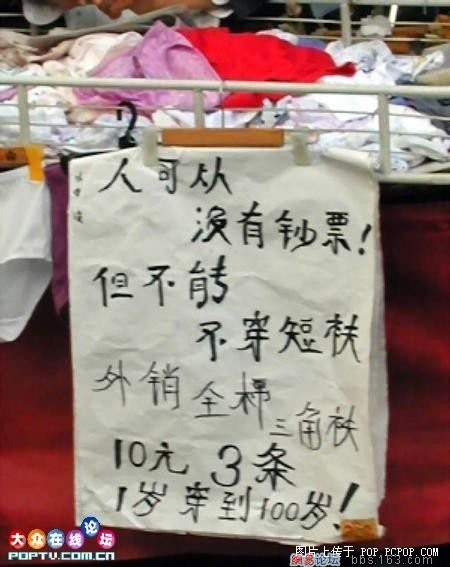 人可从
没有钞票!
但不能
不穿短衭
外销全棉
三角衭
10元 3条
1岁穿到100岁!
大众在线论坛
POPTV.COM.CN
图片上传于 POP.PCPOP.COM
网易论坛 bbs.163.com